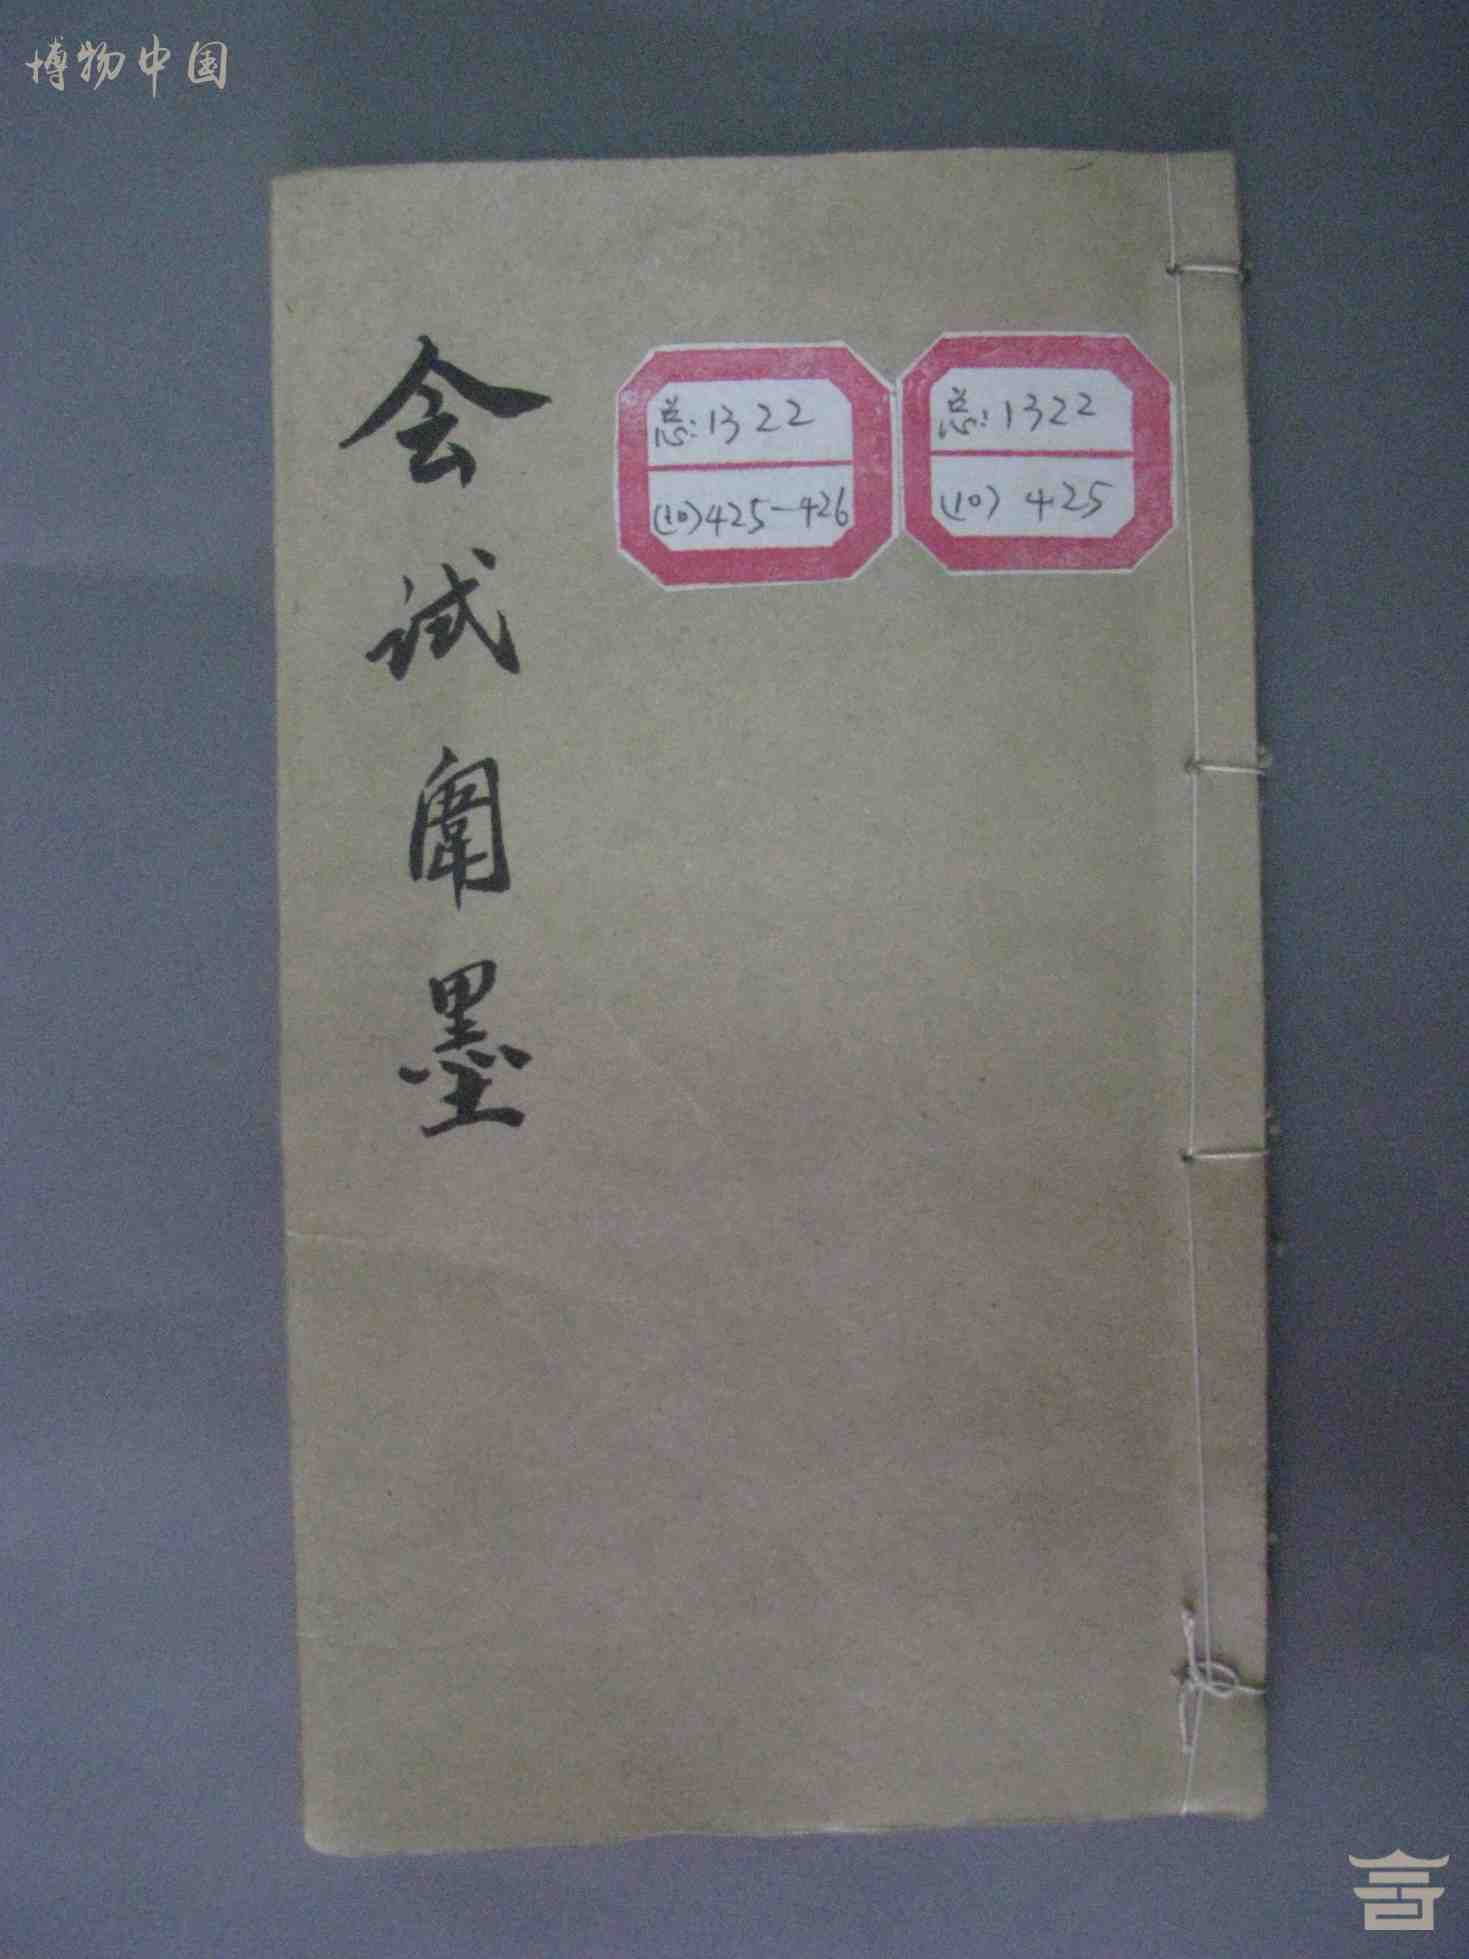 博物中国
会试闱墨
总:1322
(10)425-426
总:1322
(10) 425